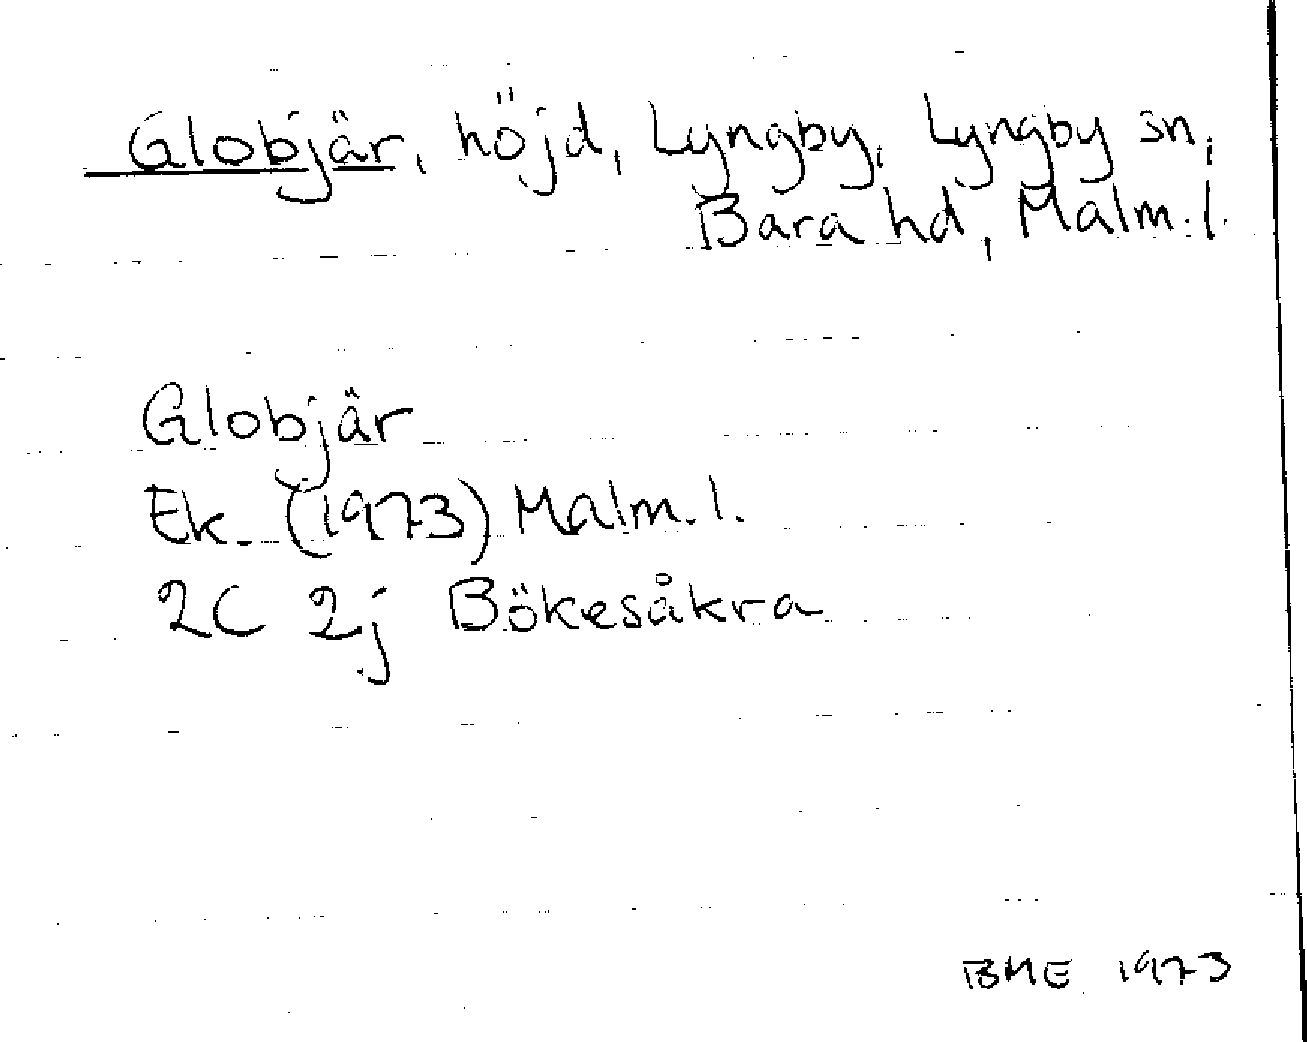 Globjär, höjd, Lyngby, Lyngby sn,
Bara hd, Malm.l.
Globjär
Ek. (1973) Malm.l.
2C 2j Bökesåkra
BME 1973